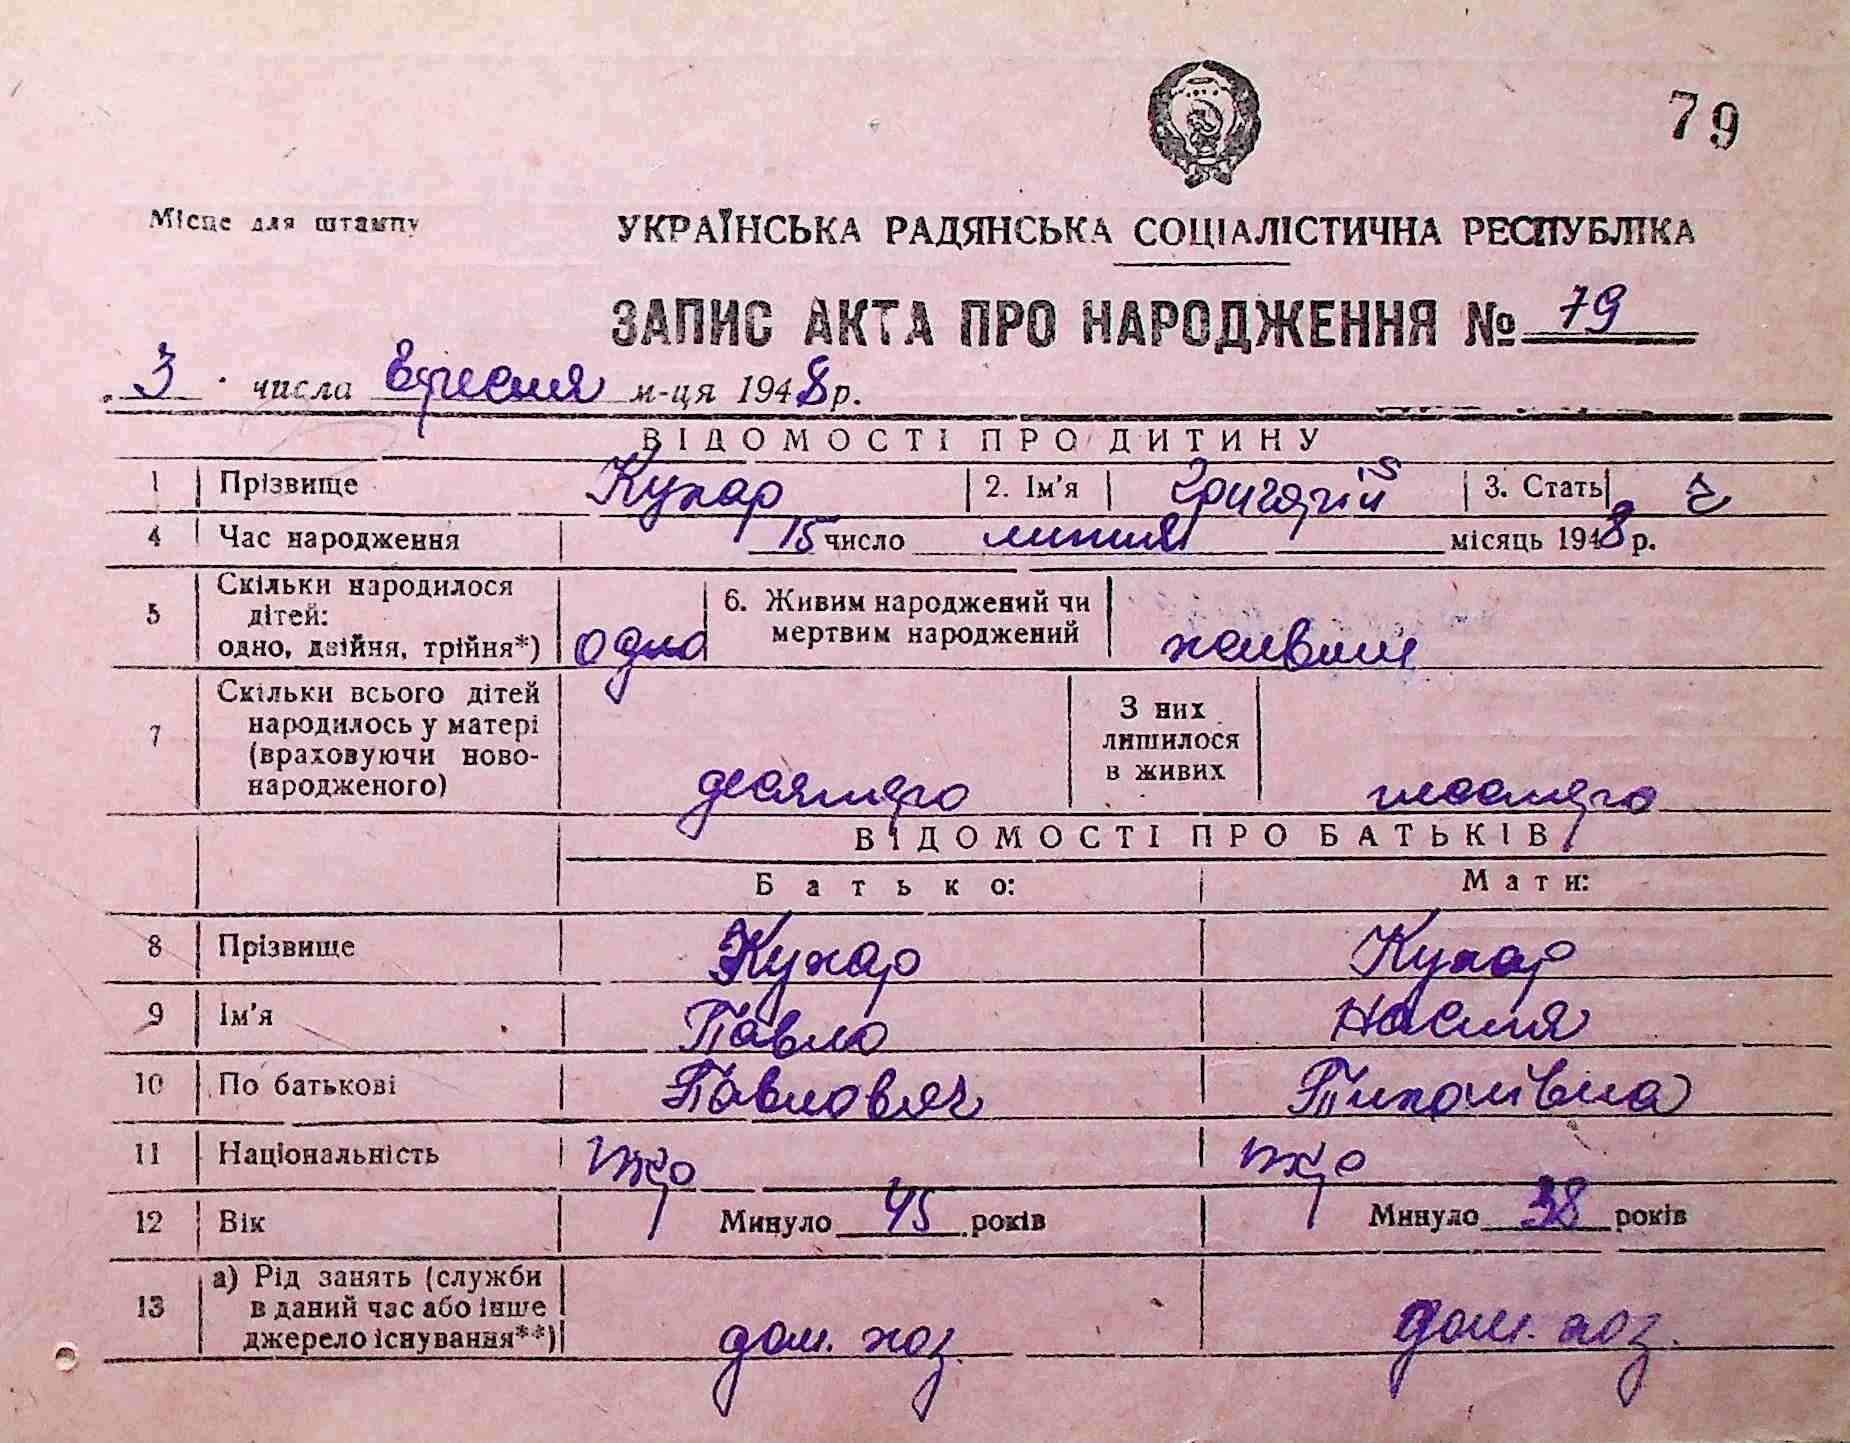 79
Місце для штампу
УКРАЇНСЬКА РАДЯНСЬКА СОЦІАЛІСТИЧНА РЕСПУБЛІКА
ЗАПИС АКТА ПРО НАРОДЖЕННЯ № 79
3 числа вересня м-ця 1948 р.
ВІДОМОСТІ ПРО ДИТИНУ
1 Прізвище Кухар 2. Ім'я Григорій 3. Стать ч
4 Час народження 15 число липня місяць 1948 р.
5 Скільки народилося дітей: одно, двійня, трійня*) одно 6. Живим народжений чи мертвим народжений живим
7 Скільки всього дітей народилось у матері (враховуючи ново-народженого) десятеро З них лишилося в живих шестеро
ВІДОМОСТІ ПРО БАТЬКІВ
Батько: Мати:
8 Прізвище Кухар Кухар
9 Ім'я Павло Насття
10 По батькові Павлович Тихонівна
11 Національність укр укр
12 Вік Минуло 45 років Минуло 38 років
13 а) Рід занять (служби в даний час або інше джерело існування**) дом. хоз. дом. хоз.